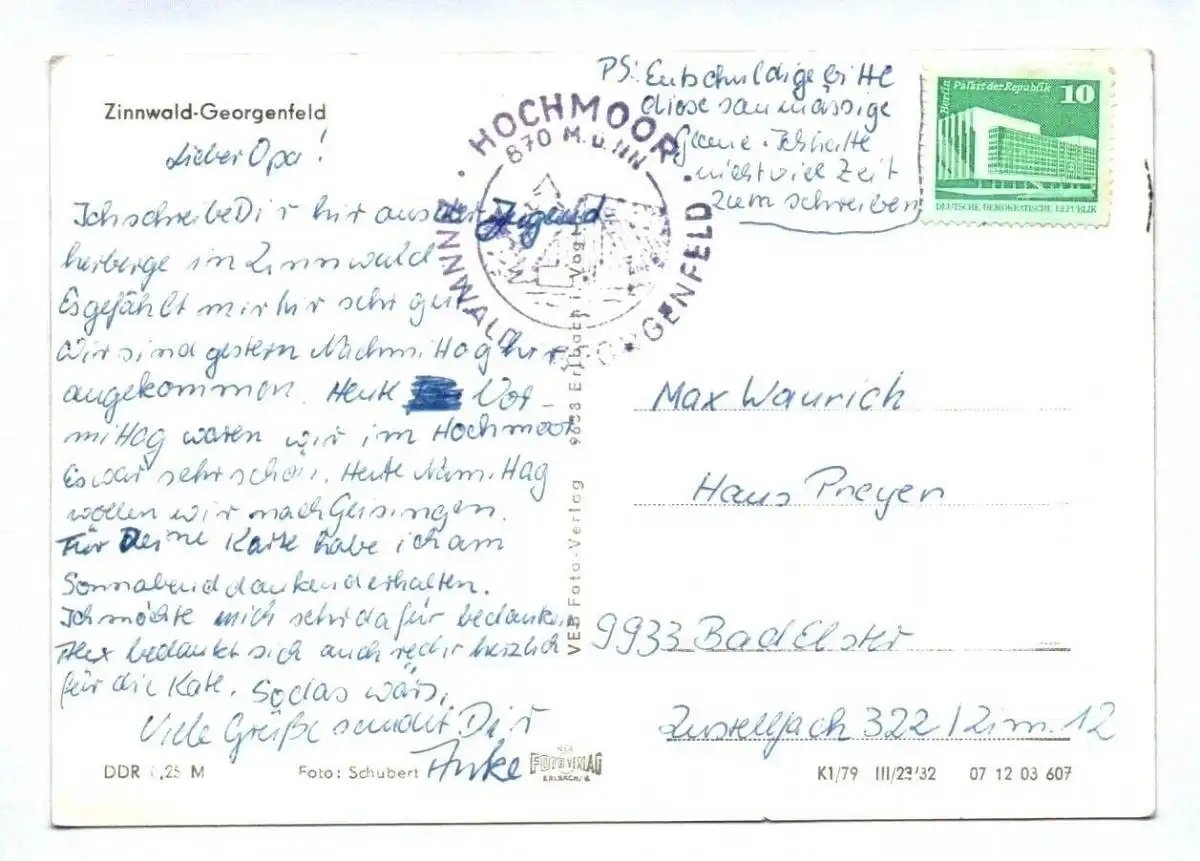 Zinnwald-Georgenfeld
Lieber Opa!
Ich schreibe Dir hir aus der Jugend
herberge in Zinnwald
Es gefählt mir hir sehr gut
Wir sind gestern Nachmittag hir
angekommen. Heute Vor-
mittag waren wir im Hochmoor
Es war sehr schön. Heute Nam. ttag
wollen wir nach Geisingen.
Für Deine Karte habe ich am
Sonnabend dankend erhalten.
Ich möchte mich sehr dafür bedanken
Alex bedankt sich auch recht herzlich
für die Kate. So das wärs,
Viele Grüße sendet Dir
Anke
DDR 0,25 M
Foto: Schubert
FOTO VERLAG
ERLBACH/V.
VEB Foto-Verlag 9933 Erlbach i. Vogtl.
HOCHMOOR
870 M. ü. NN
ZINNWALD GEORGENFELD
PS: Entschuldige bitte
diese saumässige
Ich hatte
nicht viel Zeit
zum schreiben
Berlin Palast der Republik 10
DEUTSCHE DEMOKRATISCHE REPUBLIK
Max Waurich
Haus Preyer
9933 Bad Elster
Zustellfach 322 / Zim. 12
K1/79 III/23/32 07 12 03 607